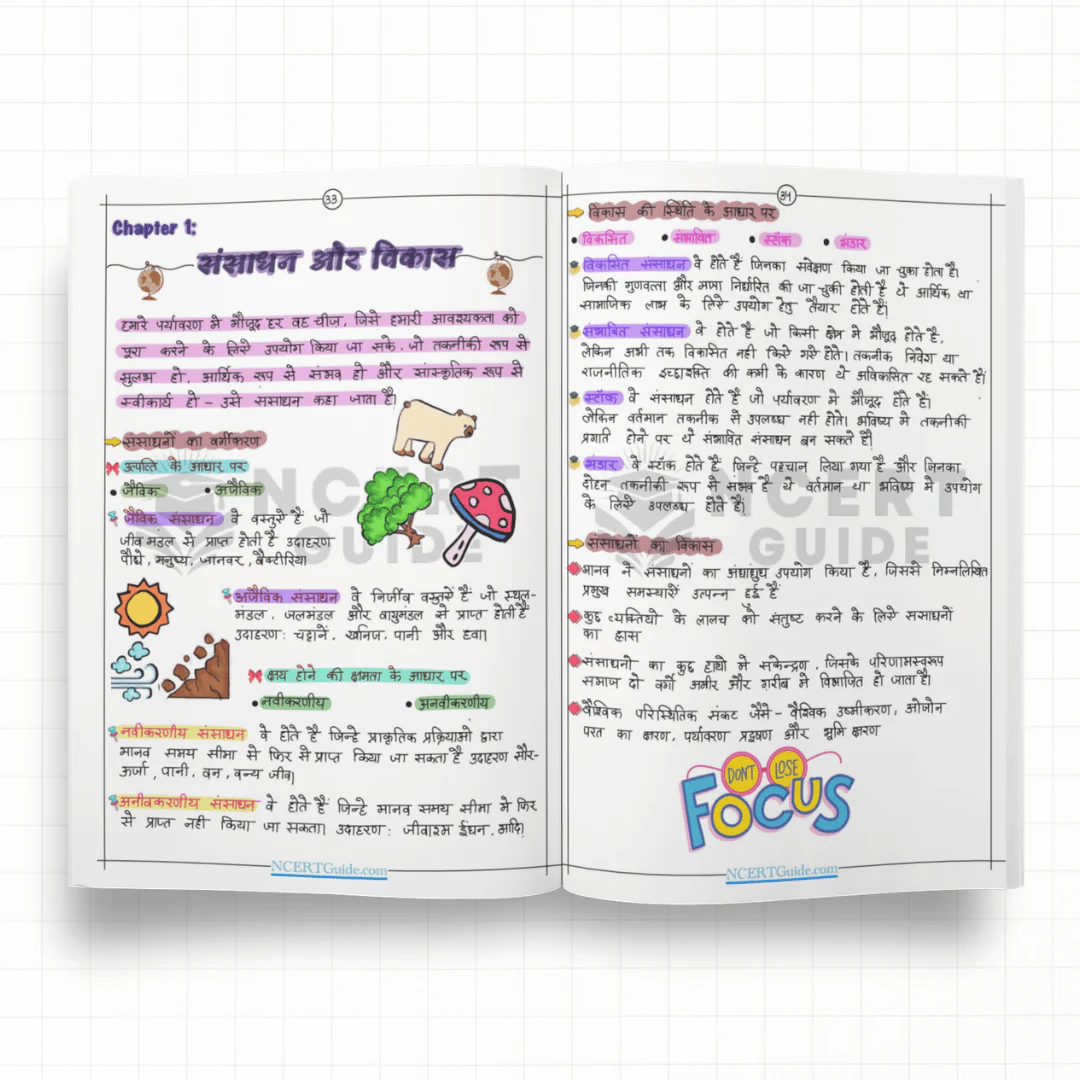 33
Chapter 1:
संसाधन ओर विकास
हमारे पर्यावरण मे मौजूद हर वह चीज, जिसे हमारी आवश्यकता को
पूरा करने के लिये उपयोग किया जा सके. जो तकनीकी रूप से
सुलभ हो, आर्थिक रूप से संभव हो और सांस्कृतिक रूप से
स्वीकार्य हो - उसे संसाधन कहा जाता है।
संसाधनों का वर्गीकरण
उत्पत्ति के आधार पर
• जैविक • अजैविक
जैविक संसाधन वे वस्तुएे हैं जो
जीव मंडल से प्राप्त होती है उदाहरण
पौधे, मनुष्य, जानवर, बैक्टीरिया
अजैविक संसाधन वे निर्जीव वस्तुएें हैं जो स्थल-
मंडल, जलमंडल और वायुमंडल से प्राप्त होती हैं
उदाहरण: चट्टानें, खनिज, पानी और हवा।
क्षय होने की क्षमता के आधार पर
• नवीकरणीय • अनवीकरणीय
नवीकरणीय संसाधन वे होते हैं जिन्हे प्राकृतिक प्रक्रियाओ द्वारा
मानव समय सीमा से फिर से प्राप्त किया जा सकता है उदाहरण सौर-
ऊर्जा, पानी, वन, वन्य जीव।
अनीवकरणीय संसाधन वे होते हैं जिन्हे मानव समय सीमा मे फिर
से प्राप्त नही किया जा सकता। उदाहरण: जीवाश्म ईंधन, आदि।
NCERTGuide.com
NCERT
GUIDE
34
विकास की स्थिति के आधार पर
• विकसित • संभावित • स्टॉक • भंडार
विकसित संसाधन वे होते हैं जिनका सर्वेक्षण किया जा चुका होता है।
जिनकी गुणवत्ता और मात्रा निर्धारित की जा चुकी होती है ये आर्थिक या
सामाजिक लाभ के लिए उपयोग हेतु तैयार होते हैं।
संभावित संसाधन वे होते हैं जो किसी क्षेत्र मे मौजूद होते है,
लेकिन अभी तक विकसित नही किए गए होते। तकनीक निवेश या
राजनीतिक इच्छाशक्ति की कमी के कारण ये अविकसित रह सकते हैं।
स्टॉक वे संसाधन होते हैं जो पर्यावरण मे मौजूद होते हैं।
लेकिन वर्तमान तकनीक से उपलब्ध नही होते। भविष्य मे तकनीकी
प्रगति होने पर ये संभावित संसाधन बन सकते हैं।
भंडार वे स्टॉक होते हैं जिन्हे पहचान लिया गया है और जिनका
दोहन तकनीकी रूप से संभव है ये वर्तमान या भविष्य मे उपयोग
के लिए उपलब्ध होते हैं।
संसाधनों का विकास
मानव ने संसाधनों का अंधाधुंध उपयोग किया है, जिससे निम्नलिखित
प्रमुख समस्याएं उत्पन्न हुई हैं
कुछ व्यक्तियो के लालच को संतुष्ट करने के लिए संसाधनों
का ह्रास
संसाधनो का कुछ हाथो मे सकेन्द्रण, जिसके परिणामस्वरूप
समाज दो वर्गो अमीर और ग़रीब मे विभाजित हो जाता है।
वैश्विक परिस्थितिक संकट जैसे- वैश्विक उष्मीकरण, ओजोन
परत का क्षरण, पर्यावरण प्रदूषण और भूमि क्षरण
DON'T LOSE
FOCUS
NCERTGuide.com
NCERT
GUIDE